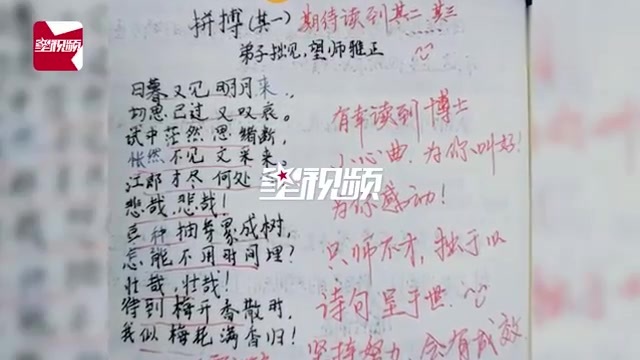 星视频
拼搏(其一) 期待读到其二 其三
弟子拙见，望师雅正
日暮又见明月来，
切思已过又叹哀。
试中茫然思绪断，
怅然不见文采来。
江郎才尽何处
悲哉，悲哉！
豆种抽芽累成树，
怎能不用时间埋？
壮哉，壮哉！
得到梅开香散时，
我似梅花满香归！
有幸读到博士
小心曲，为你叫好！
为你感动！
只师不才，拙于以
诗句呈于世
坚持努力，会有成效
星视频